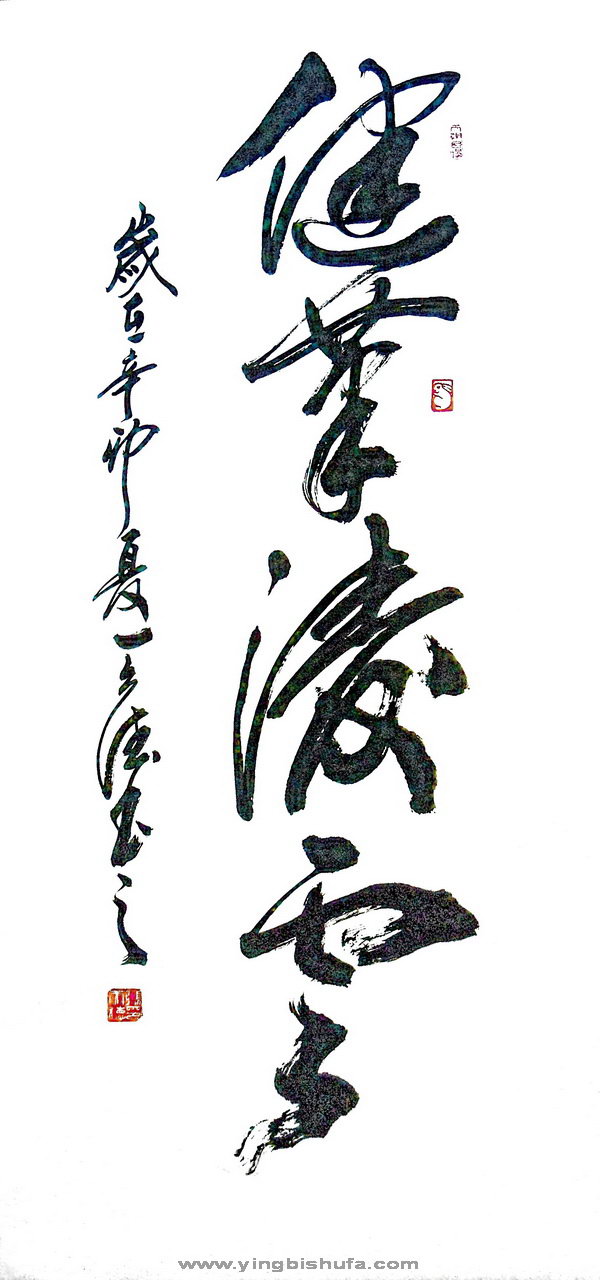 健笔凌云
歲在辛卯夏一
之
www.yingbishufa.com